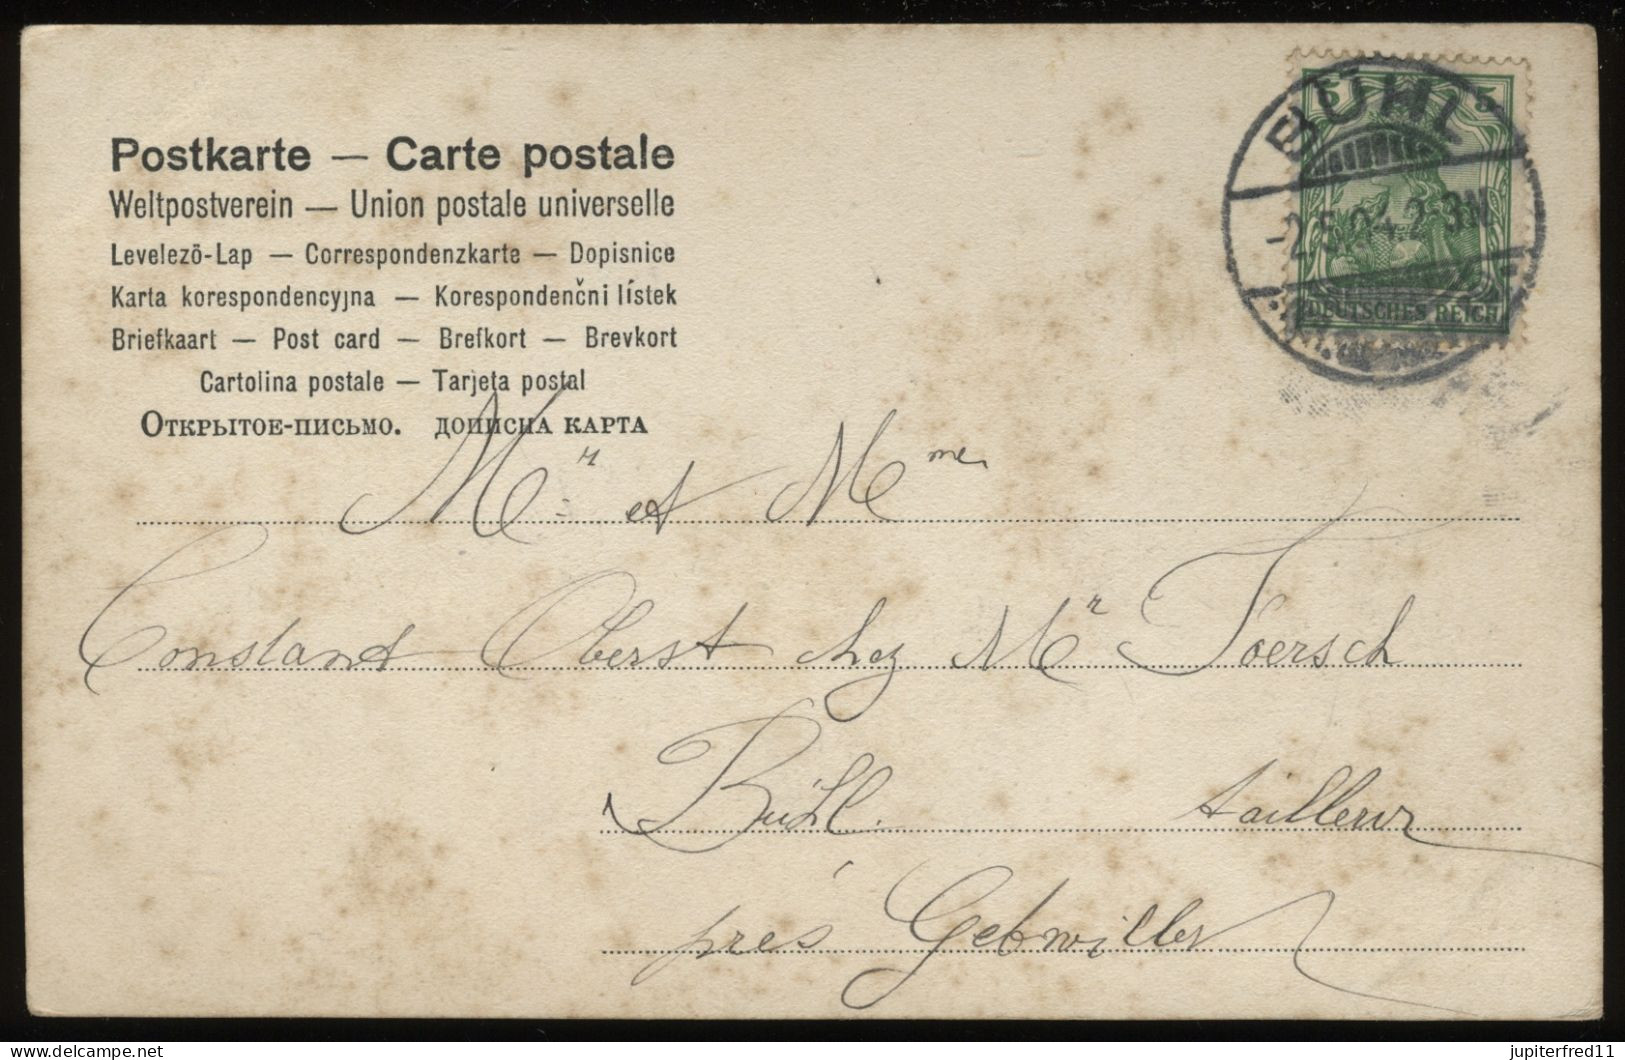 Postkarte — Carte postale
Weltpostverein — Union postale universelle
Levelezõ-Lap — Correspondenzkarte — Dopisnice
Karta korespondencyjna — Korespondenčni lístek
Briefkaart — Post card — Brefkort — Brevkort
Cartolina postale — Tarjeta postal
Открытое-письмо. дописна карта
5 5
BÜHL
-2.5.04.2-3N
DEUTSCHES REICH
Mr et Mme
Constant Oberst chez Mr Foersch
Bühl. tailleur
près Gebwiller
delcampe.net
jupiterfred11